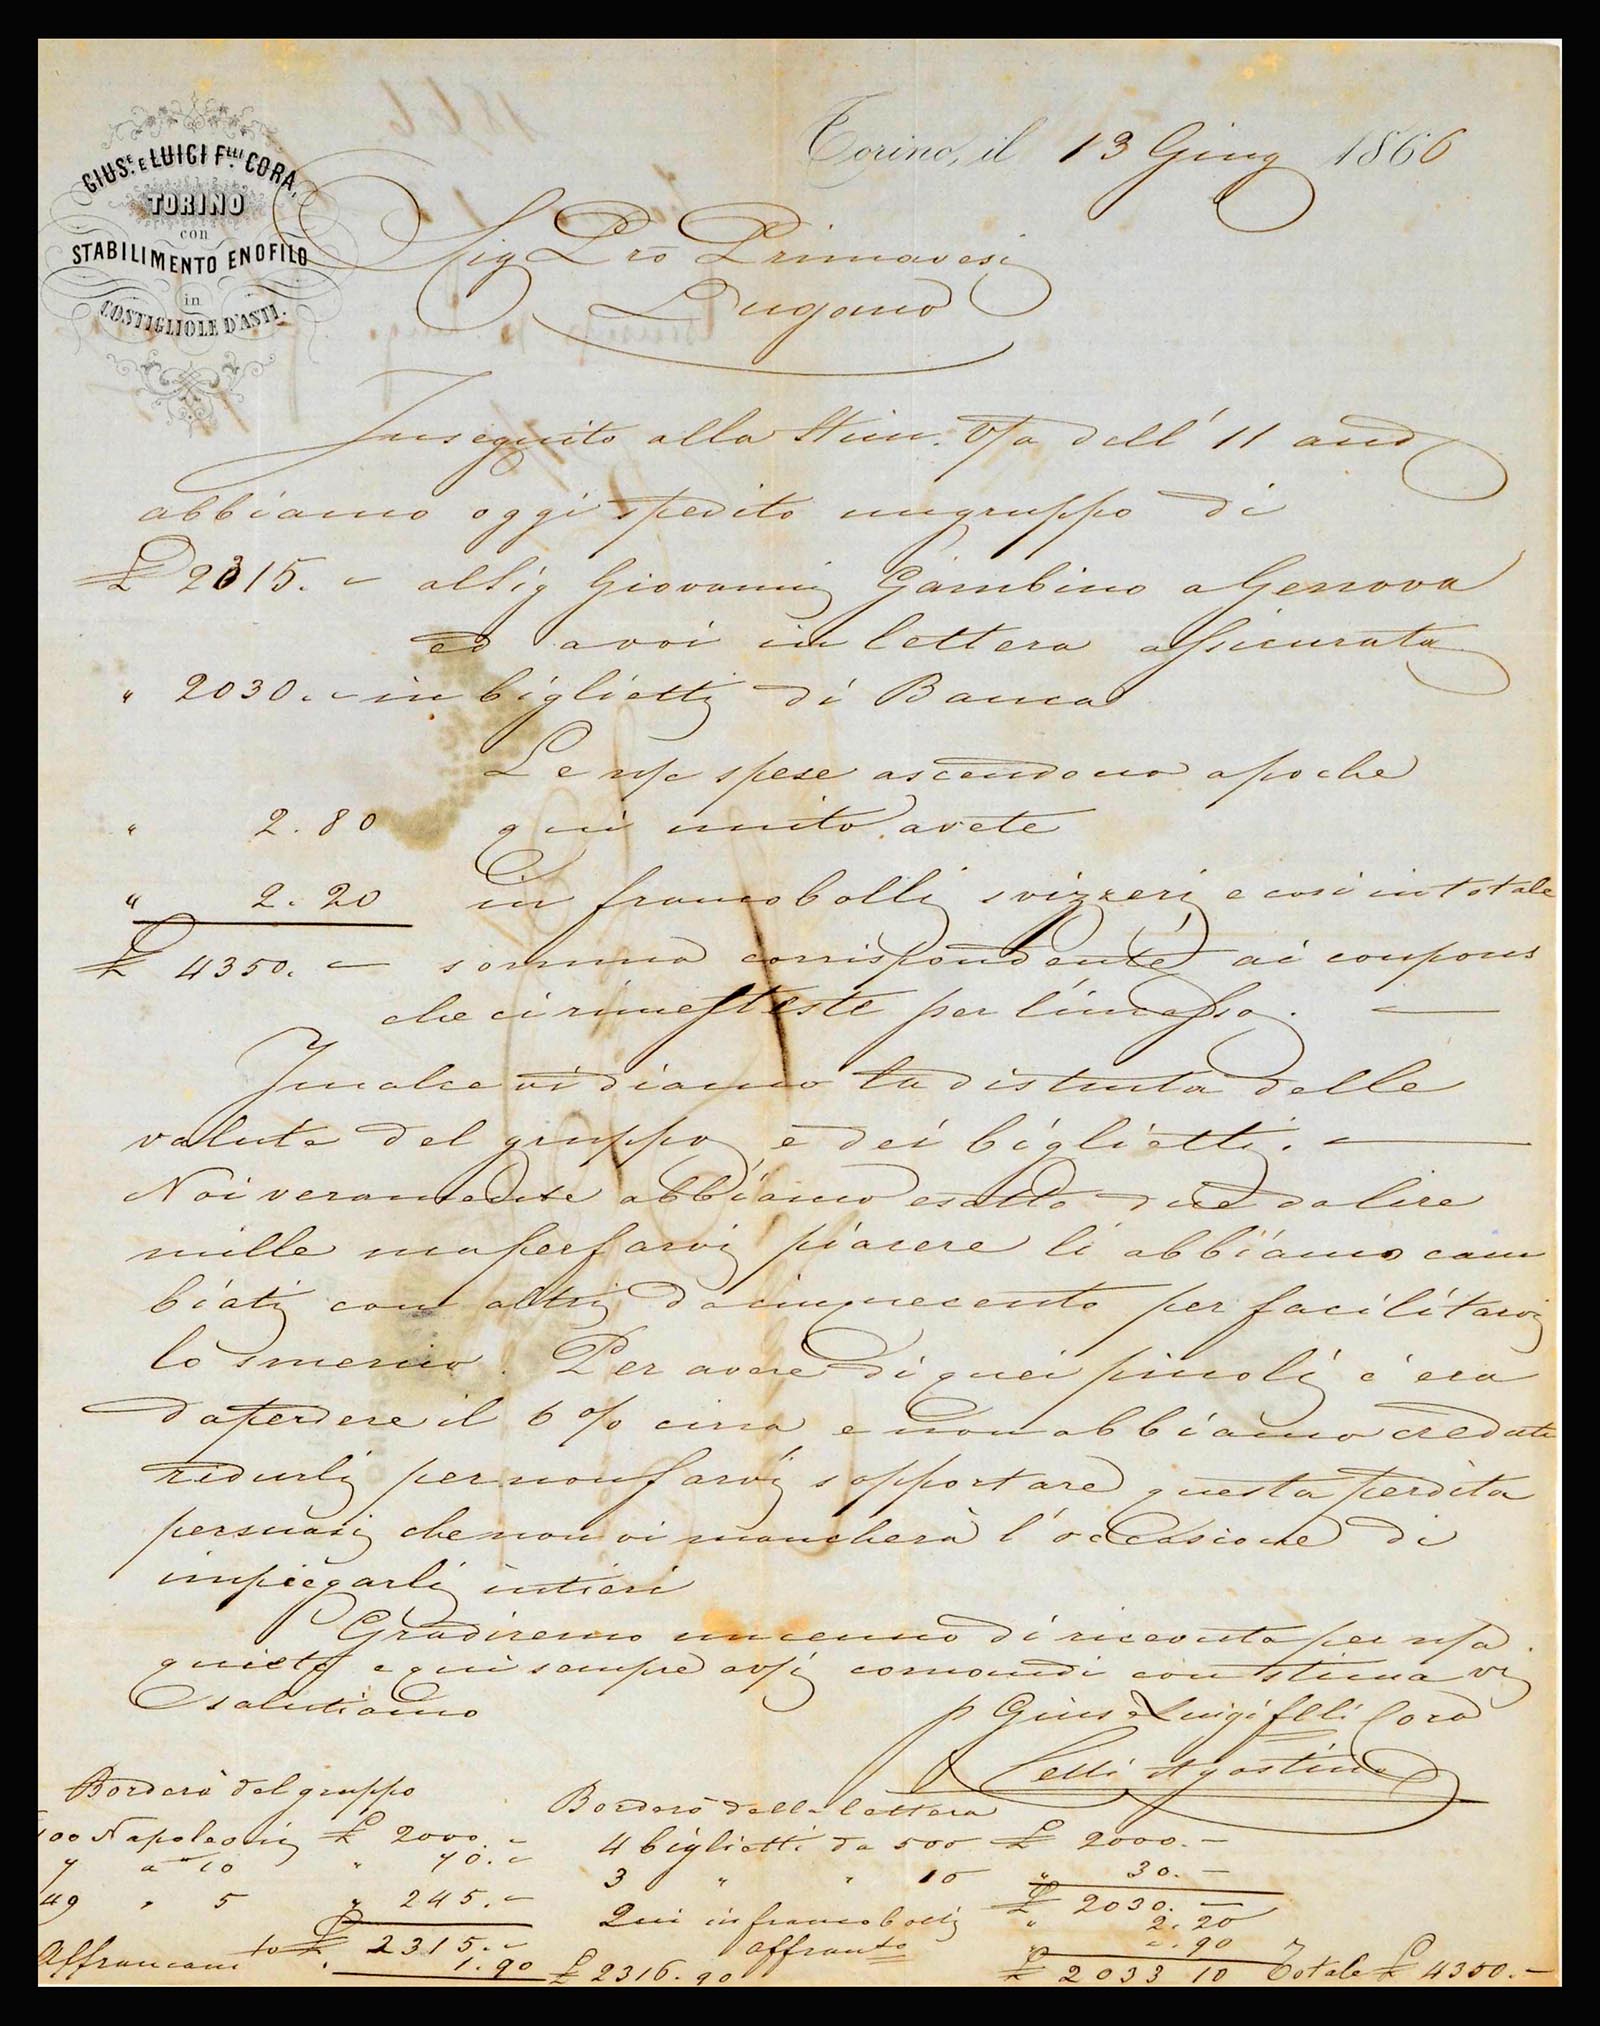 GIUS.E E LUIGI F.LLI CORA,
TORINO
con
STABILIMENTO ENOFILO
in
COSTIGLIOLE D'ASTI.
Torino, il 13 Giug 1866
Sig Pro Primavesi
Lugano
Inseguito alla Stim. V/a dell' 11 and
abbiamo oggi spedito un gruppo di
£ 2315. - al Sig Giovanni Gambino a Genova
ed a voi in lettera assicurata
" 2030. - in biglietti di Banca
Le n/e spese ascendono a poche
" 2.80 qui unito avete
" 2.20 in francobolli svizzeri e così in totale
£ 4350. - somma corrispondente ai coupons
che ci rimetteste per l'incasso.
In calce vi diamo la distinta delle
valute del gruppo e dei biglietti.
Noi veramente abbiamo esatto due da lire
mille ma per farvi piacere li abbiamo cam
biati con altri da cinquecento per facilitarvi
lo smercio. Per avere di quei piccoli c'era
da perdere il 6 % circa e non abbiamo creduto
ridurli per non farvi sopportare questa perdita
persuasi che non vi mancherà l'occasione di
impiegarli intieri
Gradiremo un cenno di ricevuta per n/a
quiete e qui sempre a v/i comandi con stima vi
salutiamo
p Gius e Luigi flli Cora
Celli Agostino
Borderò del gruppo
100 Napoleoni £ 2000. -
7 a 10 " 70. -
49 " 5 " 245. -
£ 2315. -
Affrancam to 1.90 £ 2316.90
Borderò della lettera
4 biglietti da 500 £ 2000. -
3 " " 10 " 30. -
£ 2030. -
Qui in francobolli " 2.20
affranto " -.90
£ 2033 10 Totale £ 4350. -